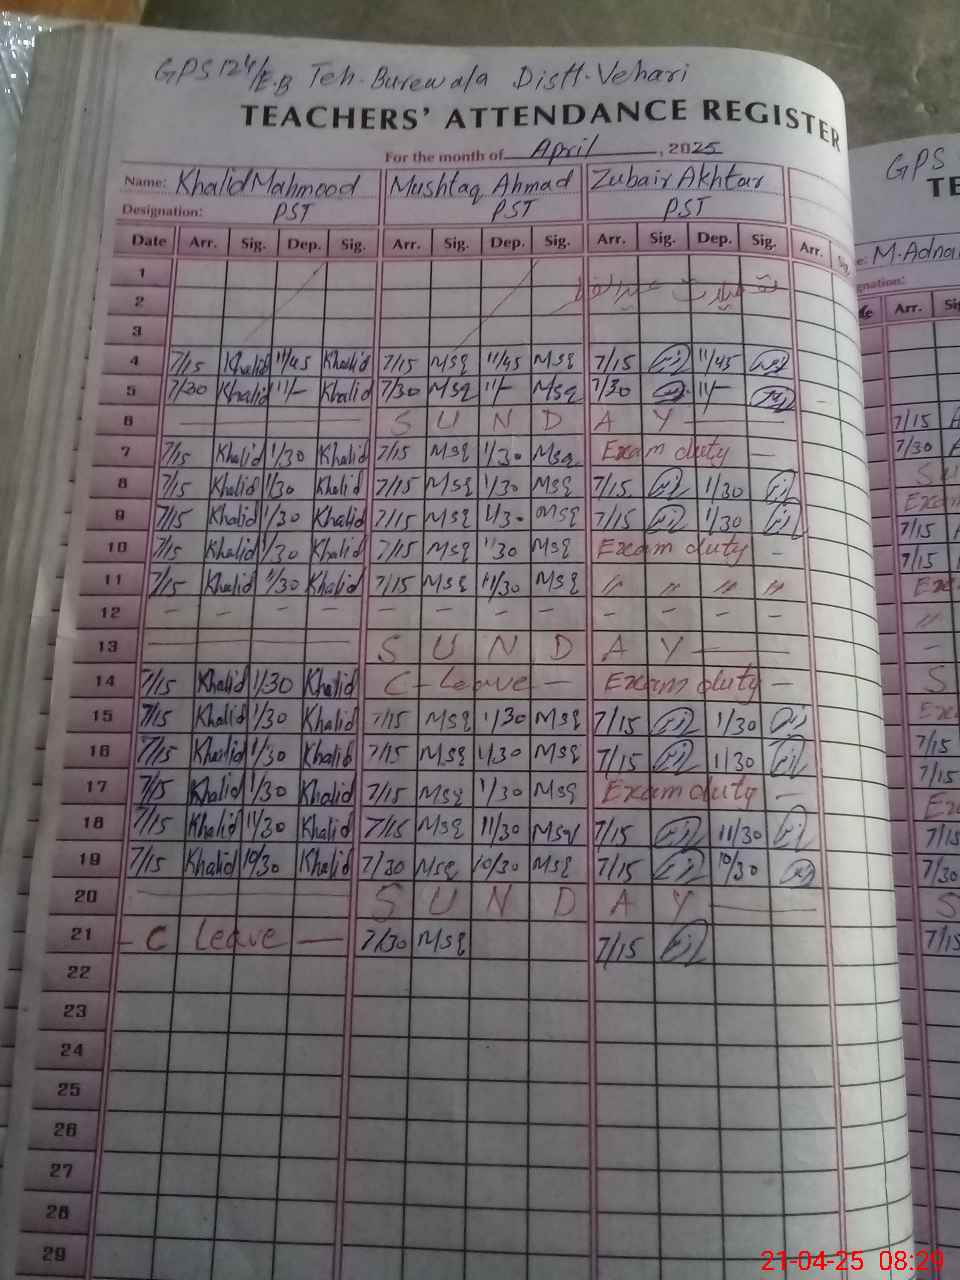 GPS 124/E.B Teh. Burewala Distt. Vehari
TEACHERS' ATTENDANCE REGISTER
For the month of April, 2025
Name: Khalid Mahmood Mushtaq Ahmad Zubair Akhtar
Designation: PST PST PST
Date Arr. Sig. Dep. Sig. Arr. Sig. Dep. Sig. Arr. Sig. Dep. Sig. Arr. Sig.
1
2
3
4 7/15 Khalid 11/45 Khalid 7/15 MSq 11/45 MSq 7/15 11/45
5 7/30 Khalid 11/- Khalid 7/30 MSq 11/- MSq 7/30 11/-
6 — S U N D A Y —
7 7/15 Khalid 1/30 Khalid 7/15 MSq 1/30 MSq Exam duty —
8 7/15 Khalid 1/30 Khalid 7/15 MSq 1/30 MSq 7/15 1/30
9 7/15 Khalid 1/30 Khalid 7/15 MSq 1/30 MSq 7/15 1/30
10 7/15 Khalid 1/30 Khalid 7/15 MSq 1/30 MSq Exam duty -
11 7/15 Khalid 11/30 Khalid 7/15 MSq 11/30 MSq " " " "
12 - - - - - - - - - - - -
13 — S U N D A Y —
14 7/15 Khalid 1/30 Khalid C-Leave — Exam duty —
15 7/15 Khalid 1/30 Khalid 7/15 MSq 1/30 MSq 7/15 1/30
16 7/15 Khalid 1/30 Khalid 7/15 MSq 1/30 MSq 7/15 1/30
17 7/15 Khalid 1/30 Khalid 7/15 MSq 1/30 MSq Exam duty —
18 7/15 Khalid 11/30 Khalid 7/15 MSq 11/30 MSq 7/15 11/30
19 7/15 Khalid 10/30 Khalid 7/30 MSq 10/30 MSq 7/15 10/30
20 — S U N D A Y —
21 - C Leave — 7/30 MSq 7/15
22
23
24
25
26
27
28
29
GPS
TE
M. Adna
Arr.
7/15
7/30
7/15
7/15
S
7/15
7/15
7/15
7/30
S
7/15
21-04-25 08:29